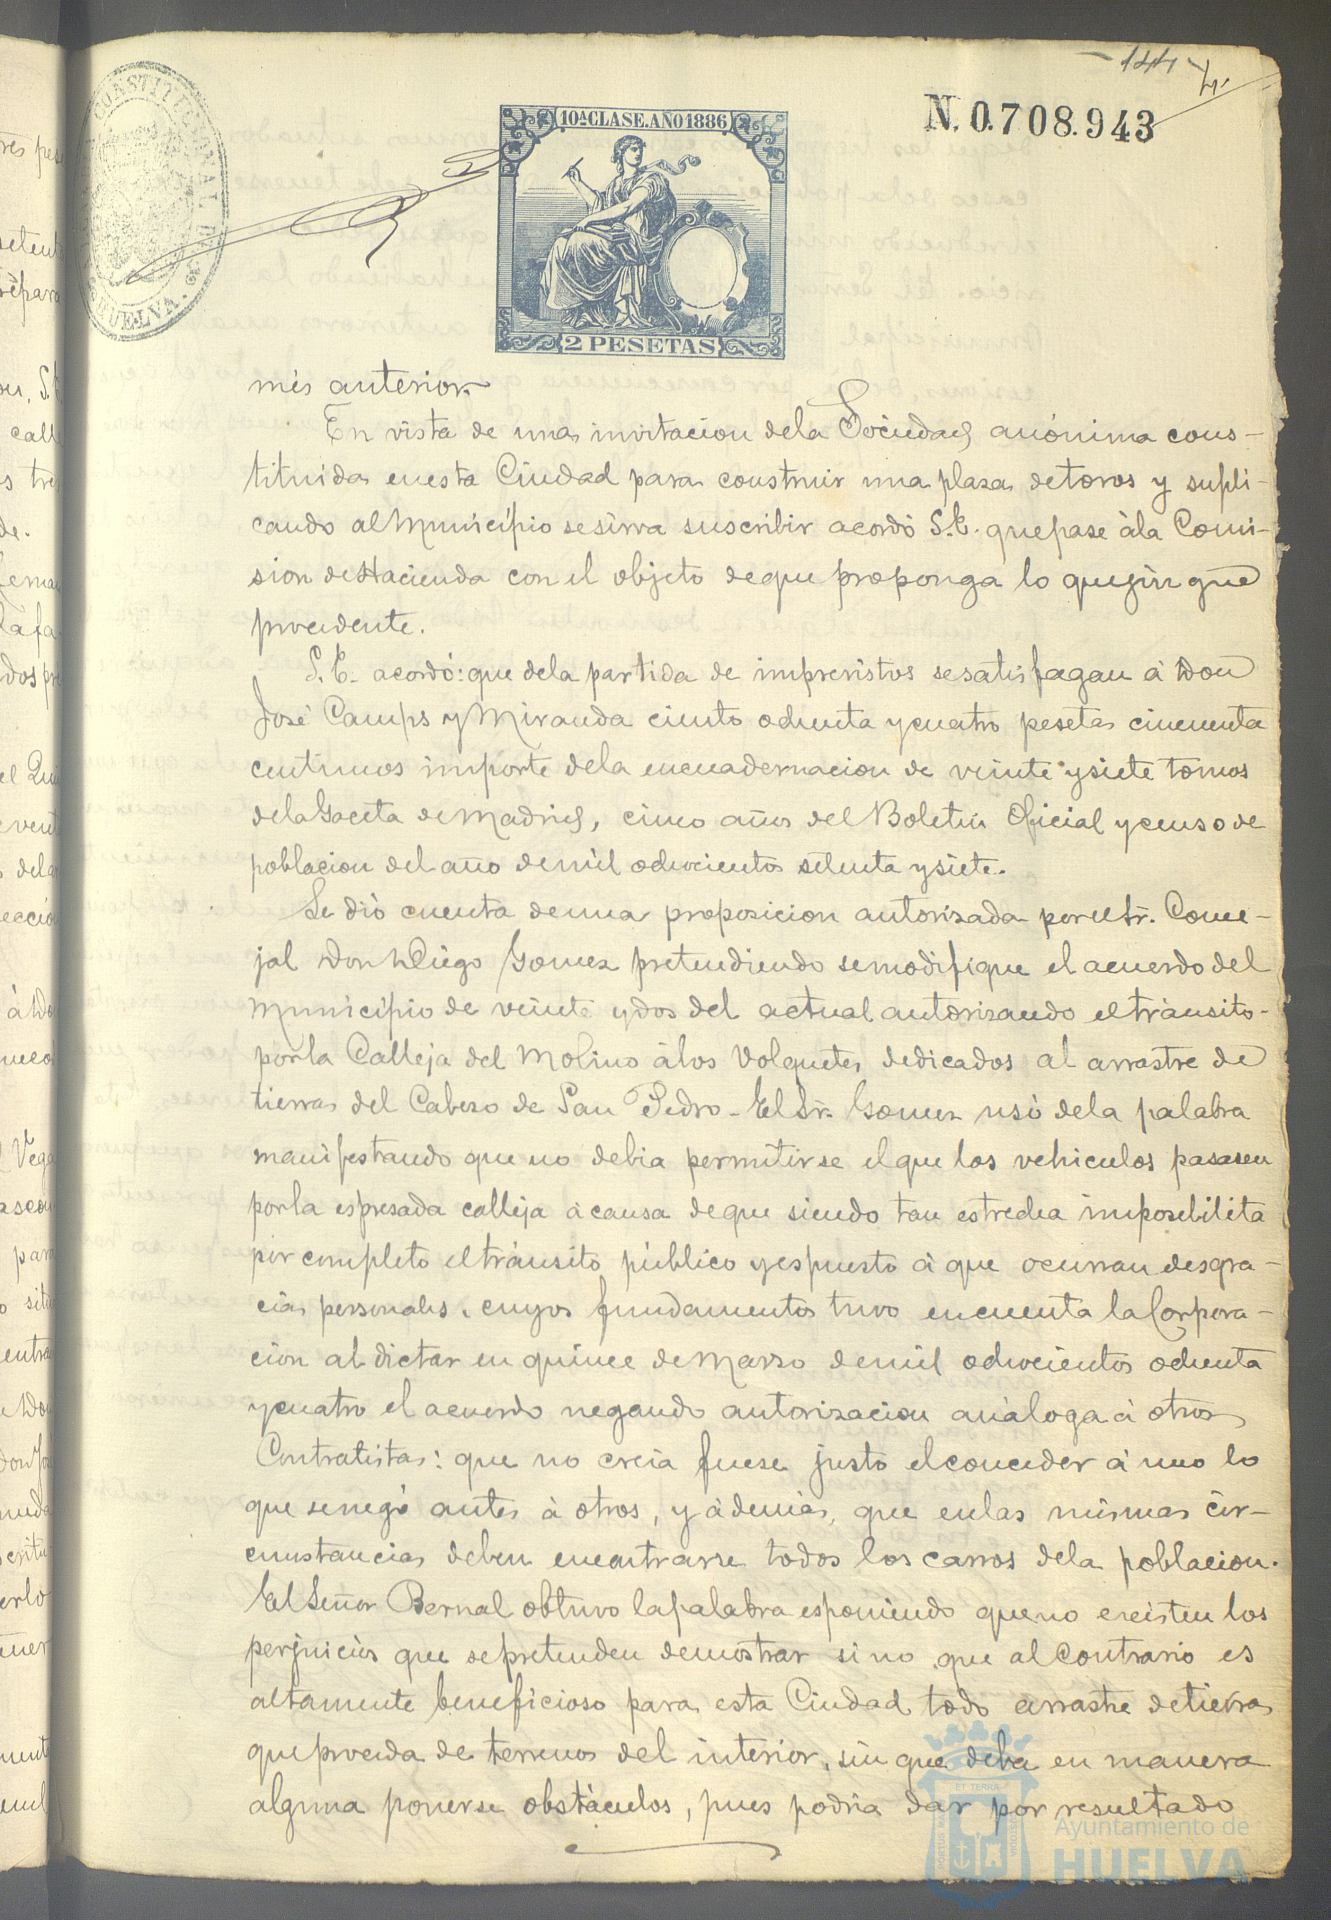 144
N. 0.708.943
CONSTITUCIONAL DE
HUELVA.
10ª CLASE. AÑO 1886
2 PESETAS
més anterior.
En vista de una invitacion dela Sociedad anónima cons-
tituida enesta Ciudad para construir una plaza detoros y supli-
cando al Municipio sesirva suscribir acordó S.E. quepase àla Comi-
sion deHacienda con el objeto deque proponga lo quejuzgue
procedente.
S.E. acordó: que dela partida de imprevistos sesatisfagan á Don
José Camps y Miranda ciento ochenta ycuatro pesetas cincuenta
centimos importe dela encuadernacion de veinte ysiete tomos
delaGaceta deMadrid, cinco años del Boletin Oficial ycenso de
poblacion del año demil ochocientos setenta ysiete.
Se dió cuenta deuna proposicion autorizada porelSr. Conce-
jal Don Diego Gomez pretendiendo semodifique el acuerdo del
Municipio de veinte ydos del actual autorizando eltránsito
porla Calleja del Molino álos Volquetes dedicados al arrastre de
tierras del Cabezo de San Pedro - El Sr. Gomez usó dela palabra
manifestando que no debia permitirse elque los vehiculos pasasen
porla espresada calleja ácausa deque siendo tan estrecha imposibilita
por completo eltránsito público yespuesto á que ocurran desgra-
cias personales, cuyos fundamentos tuvo encuenta laCorpora-
cion al dictar en quince deMarzo demil ochocientos ochenta
ycuatro el acuerdo negando autorizacion análoga á otros
Contratistas: que no creia fuese justo elconceder á uno lo
que senegó antes á otros, y ádemás, que enlas mismas cir-
cunstancias deben encontrarse todos los carros dela poblacion.
El Señor Bernal obtuvo lapalabra esponiendo queno existen los
perjuicios que sepretenden demostrar sino que alContrario es
altamente beneficioso para esta Ciudad todo arrastre detierras
queproceda de terrenos del interior, sin que deba en manera
alguna ponerse obstáculos, pues podria dar por resultado
Ayuntamiento de
HUELVA